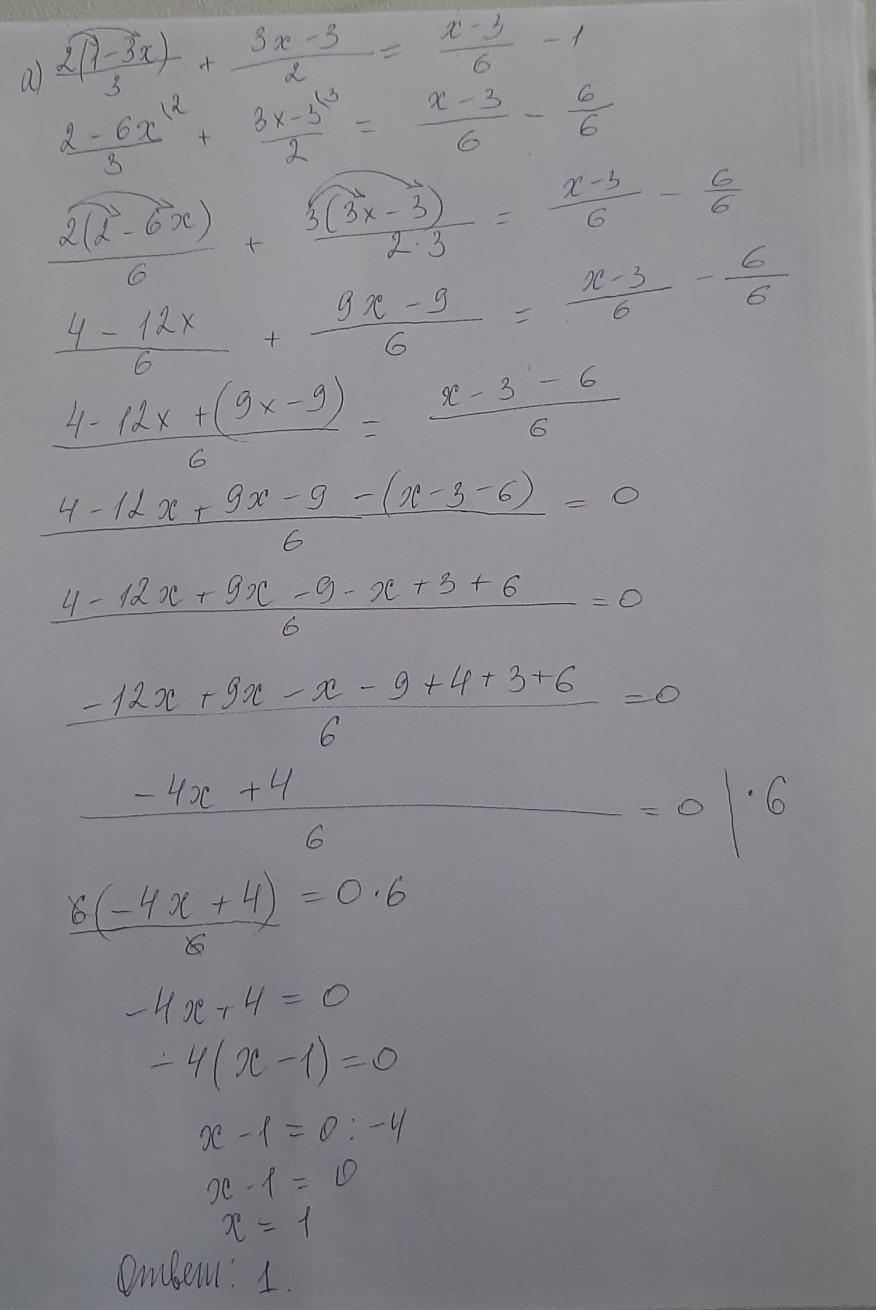 а) 2(1-3x)/3 + 3x-3/2 = x-3/6 - 1
2-6x\2/3 + 3x-3\3/2 = x-3/6 - 6/6
2(2-6x)/6 + 3(3x-3)/2·3 = x-3/6 - 6/6
4-12x/6 + 9x-9/6 = x-3/6 - 6/6
4-12x+(9x-9)/6 = x-3-6/6
4-12x+9x-9-(x-3-6)/6 = 0
4-12x+9x-9-x+3+6/6 = 0
-12x+9x-x-9+4+3+6/6 = 0
-4x+4/6 = 0 | ·6
6(-4x+4)/6 = 0·6
-4x+4 = 0
-4(x-1) = 0
x-1 = 0:-4
x-1 = 0
x = 1
Ответ: 1.